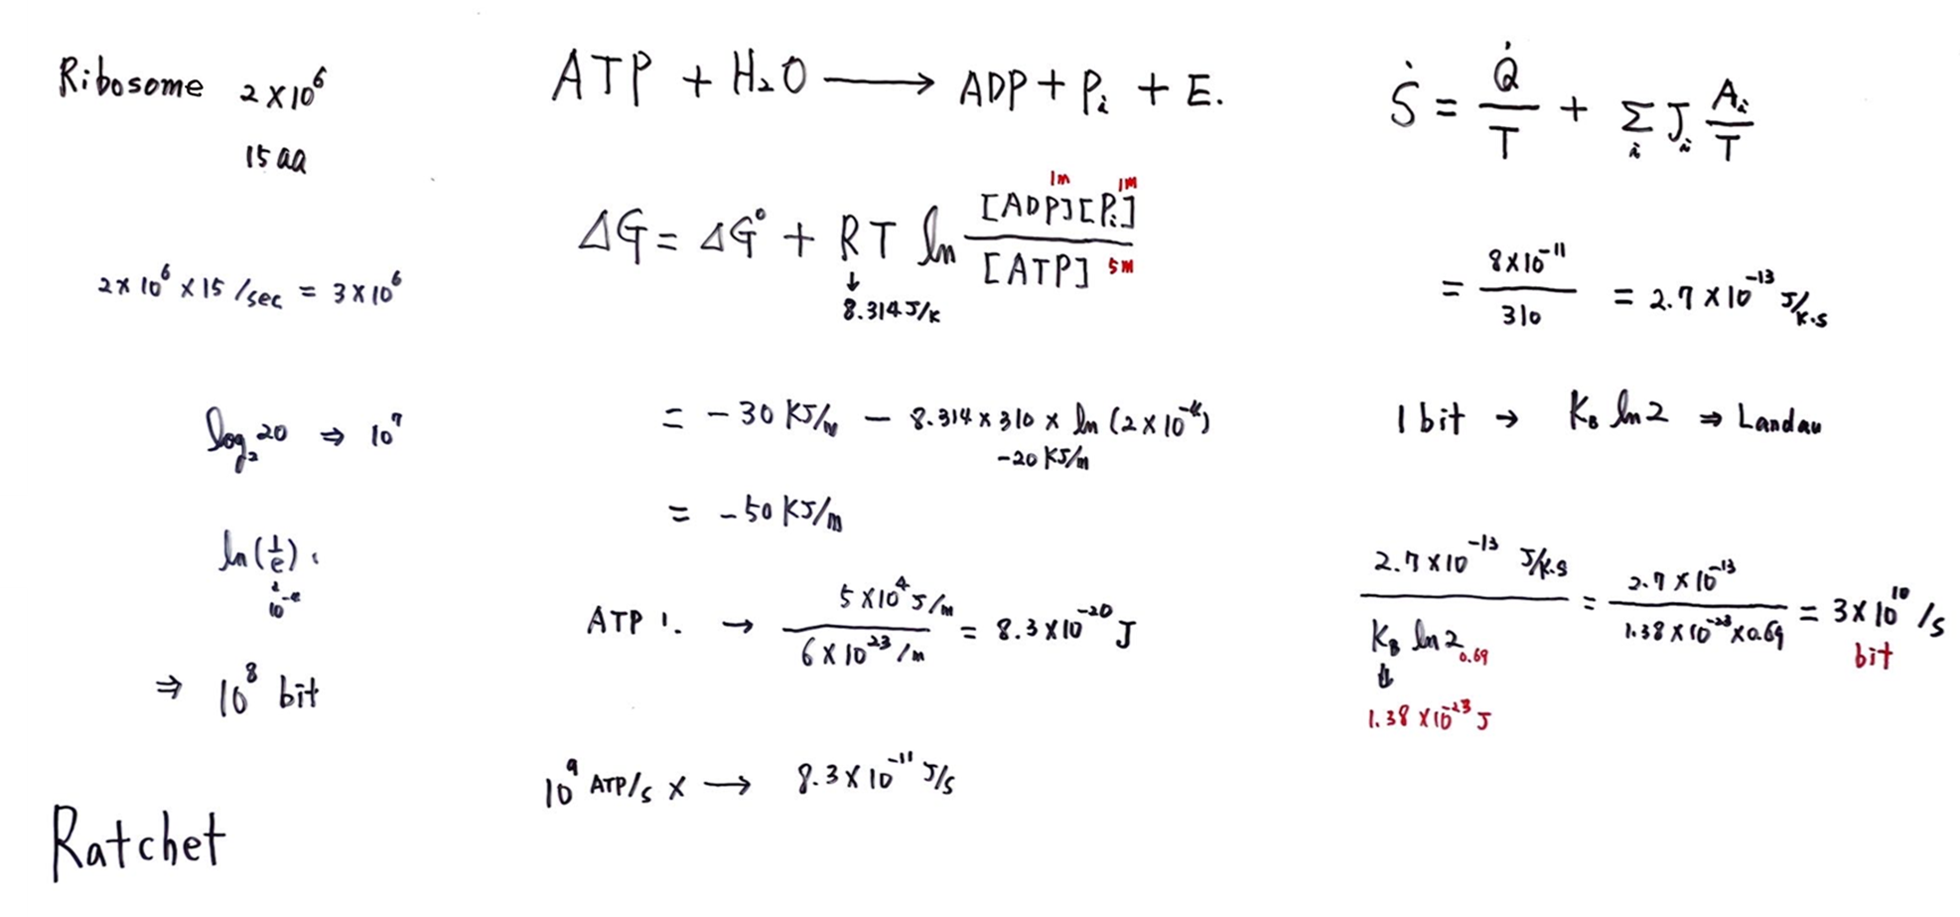 Ribosome 2×10⁶
15 aa
2×10⁶ × 15 /sec = 3×10⁶
log₂20 ⇒ 10⁷
ln(1/e)
⇒ 10⁸ bit
Ratchet
ATP + H₂O ⟶ ADP + Pᵢ + E.
1m 1M
ΔG = ΔG° + RT ln [ADP][Pᵢ] / [ATP] 5M
↓
8.314 J/K
= −30 KJ/m − 8.314 × 310 × ln(2×10⁻⁴)
−20 KJ/m
= −50 KJ/m
ATP 1. → 5×10⁴ J/m / 6×10²³ /m = 8.3×10⁻²⁰ J
10⁹ ATP/s × → 8.3×10⁻¹¹ J/s
Ṡ = Q̇/T + Σᵢ Jᵢ Aᵢ/T
= 8×10⁻¹¹ / 310 = 2.7×10⁻¹³ J/K·s
1 bit → K_B ln2 ⇒ Landau
2.7×10⁻¹³ J/K·s / K_B ln2 0.69 = 2.7×10⁻¹³ / 1.38×10⁻²³×0.69 = 3×10¹⁰ /s
bit
⇓
1.38×10⁻²³ J